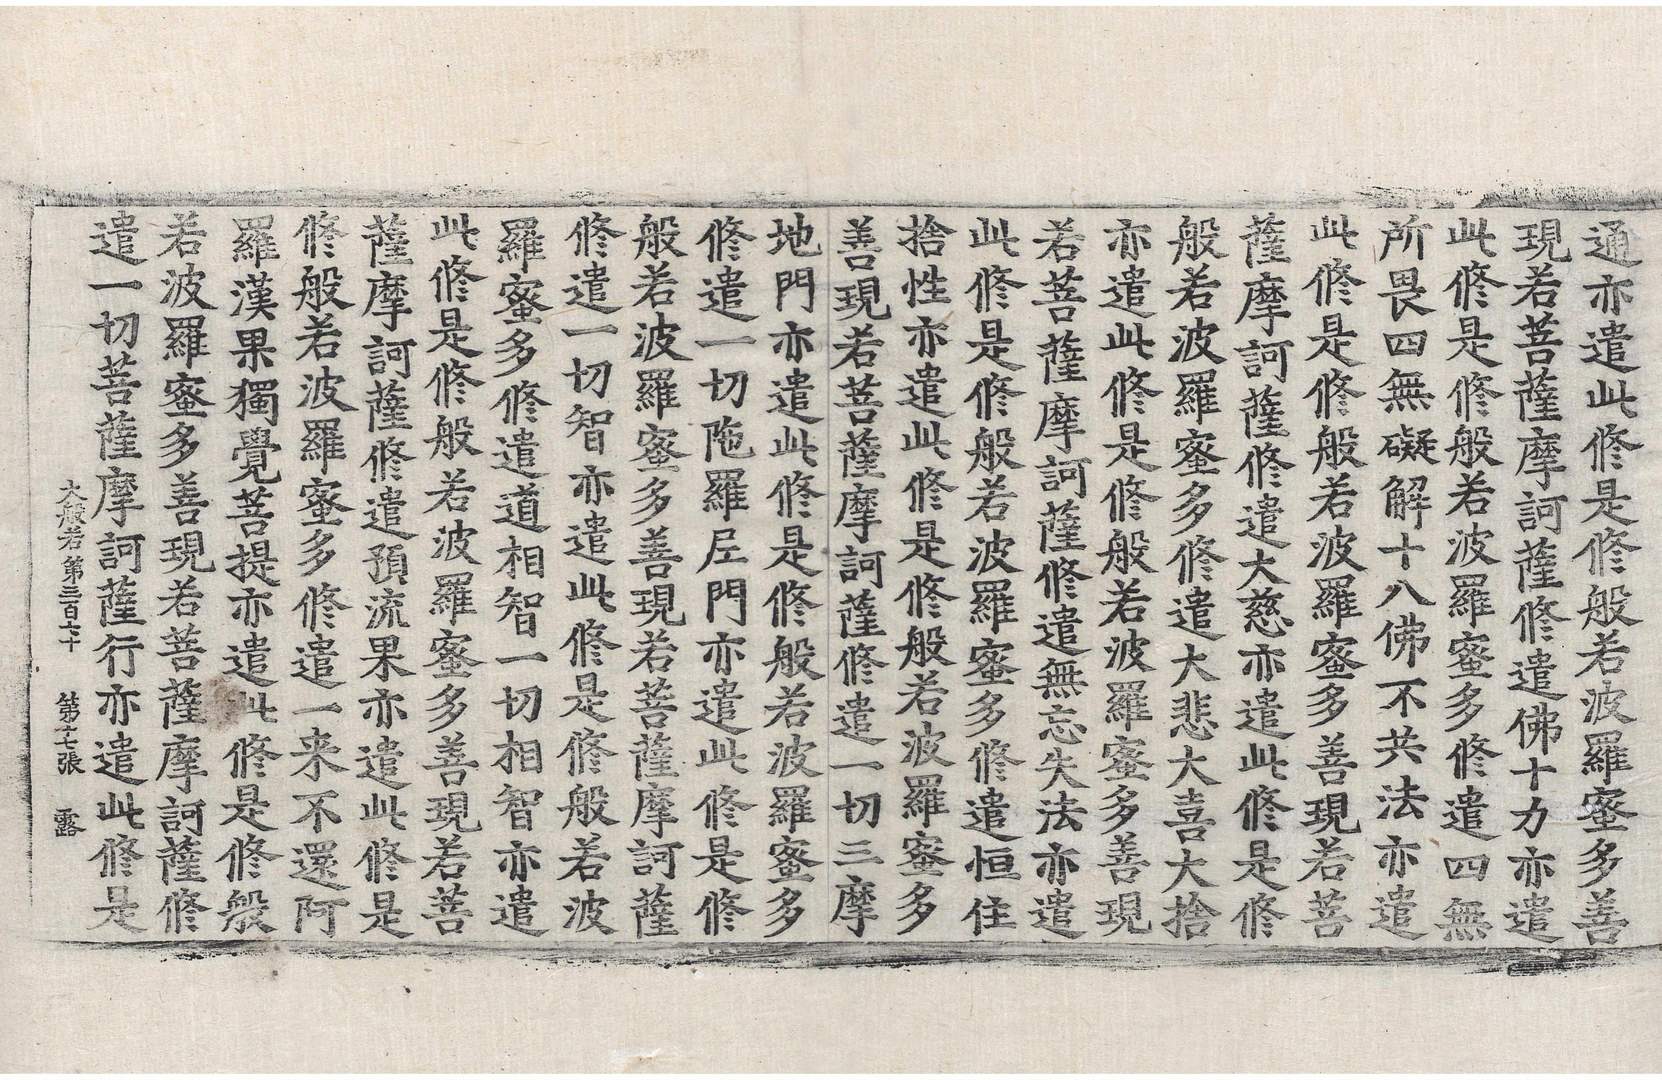 通亦遣此修是修般若波羅蜜多善
現若菩薩摩訶薩修遣佛十力亦遣
此修是修般若波羅蜜多修遣四無
所畏四無礙解十八佛不共法亦遣
此修是修般若波羅蜜多善現若菩
薩摩訶薩修遣大慈亦遣此修是修
般若波羅蜜多修遣大悲大喜大捨
亦遣此修是修般若波羅蜜多善現
若菩薩摩訶薩修遣無忘失法亦遣
此修是修般若波羅蜜多修遣恒住
捨性亦遣此修是修般若波羅蜜多
善現若菩薩摩訶薩修遣一切三摩
地門亦遣此修是修般若波羅蜜多
修遣一切陁羅尼門亦遣此修是修
般若波羅蜜多善現若菩薩摩訶薩
修遣一切智亦遣此修是修般若波
羅蜜多修遣道相智一切相智亦遣
此修是修般若波羅蜜多善現若菩
薩摩訶薩修遣預流果亦遣此修是
修般若波羅蜜多修遣一来不還阿
羅漢果獨覺菩提亦遣此修是修般
若波羅蜜多善現若菩薩摩訶薩修
遣一切菩薩摩訶薩行亦遣此修是
大般若第三百六十 第十七張 露